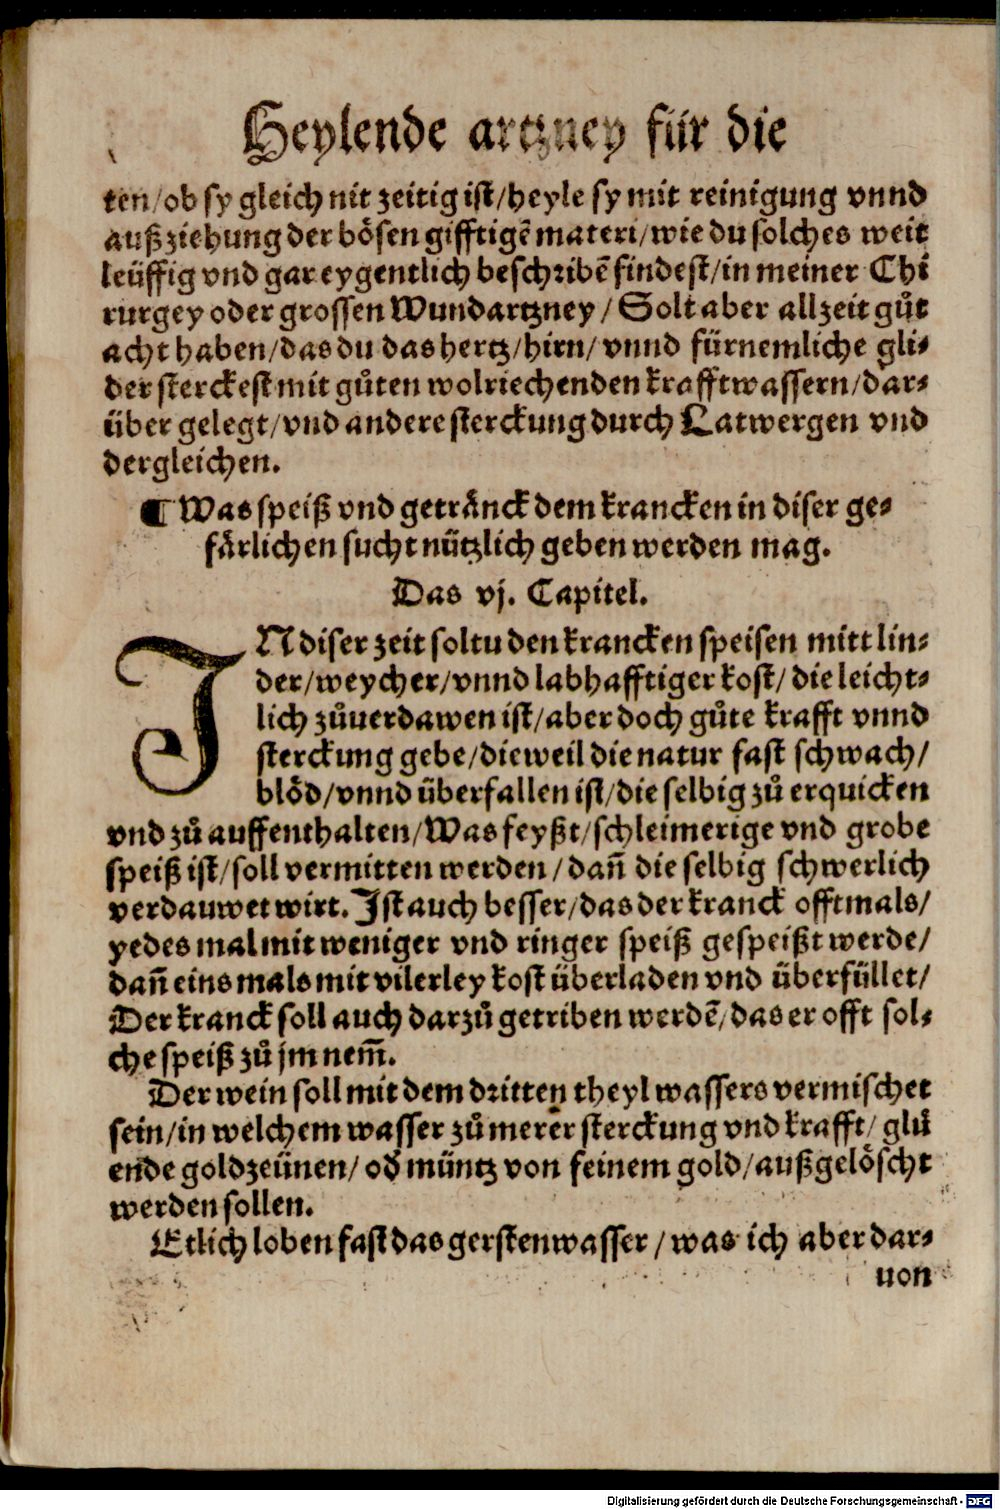 Heylende artzney für die
ten/ob sy gleich nit zeitig ist/heyle sy mit reinigung vnnd
außziehung der bösen gifftigẽ materi/wie du solches weit
leüffig vnd gar eygentlich beschribẽ findest/in meiner Chi
rurgey oder grossen Wundartzney/Solt aber allzeit gůt
acht haben/das du das hertz/hirn/vnnd fürnemliche gli⸗
der sterckest mit gůten wolriechenden krafftwassern/dar⸗
über gelegt/vnd andere sterckung durch Latwergen vnd
dergleichen.
¶ Was speiß vnd getränck dem krancken in diser ge⸗
färlichen sucht nützlich geben werden mag.
Das vj. Capitel.
IN diser zeit soltu den krancken speisen mitt lin⸗
der/weycher/vnnd labhafftiger kost/die leicht⸗
lich zůuerdawen ist/aber doch gůte krafft vnnd
sterckung gebe/dieweil die natur fast schwach/
blöd/vnnd überfallen ist/die selbig zů erquicken
vnd zů auffenthalten/Was feyßt/schleimerige vnd grobe
speiß ist/soll vermitten werden/dañ die selbig schwerlich
verdauwet wirt. Ist auch besser/das der kranck offtmals/
yedes mal mit weniger vnd ringer speiß gespeißt werde/
dañ eins mals mit vilerley kost überladen vnd überfüllet/
Der kranck soll auch darzů getriben werdẽ/das er offt sol⸗
che speiß zů jm nem̃.
Der wein soll mit dem dritten theyl wassers vermischet
sein/in welchem wasser zů merer sterckung vnd krafft/glü
ende goldzeünen/od̕ müntz von feinem gold/außgelöscht
werden sollen.
Etlich loben fast das gerstenwasser/was ich aber dar⸗
uon
Digitalisierung gefördert durch die Deutsche Forschungsgemeinschaft - DFG